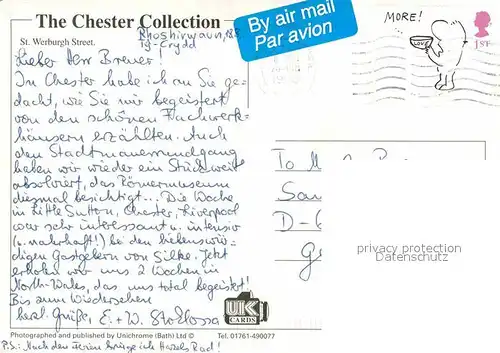 The Chester Collection
St. Werburgh Street.
Rhoshirwaun, 18.8
Ty-Crydd
Lieber Herr Breuer!
In Chester habe ich an Sie ge-
dacht, wie Sie mir begeistert
von den schönen Fachwerk-
häusern erzählten. Auch
den Stadtmauerrundgang
haben wir wieder ein Stück weit
absolviert, das Römermuseum
diesmal besichtigt... Die Woche
in Little Sutton, Chester, Liverpool
war sehr interessant u. intensiv
(u. nahrhaft!) bei den liebenswür-
digen Gastgebern von Silke. Jetzt
erholen wir uns 2 Wochen in
North-Wales, das uns total begeistert!
Bis zum Wiedersehen
herzl. Grüße, E. + W. Stoklossa
By air mail
Par avion
MORE!
LOVE
1ST
To
D-6
Ge
privacy protection
Datenschutz
UK
CARDS
Photographed and published by Unichrome (Bath) Ltd ©
Tel. 01761-490077
P.S.: Nach den Ferien bringe ich Rad!